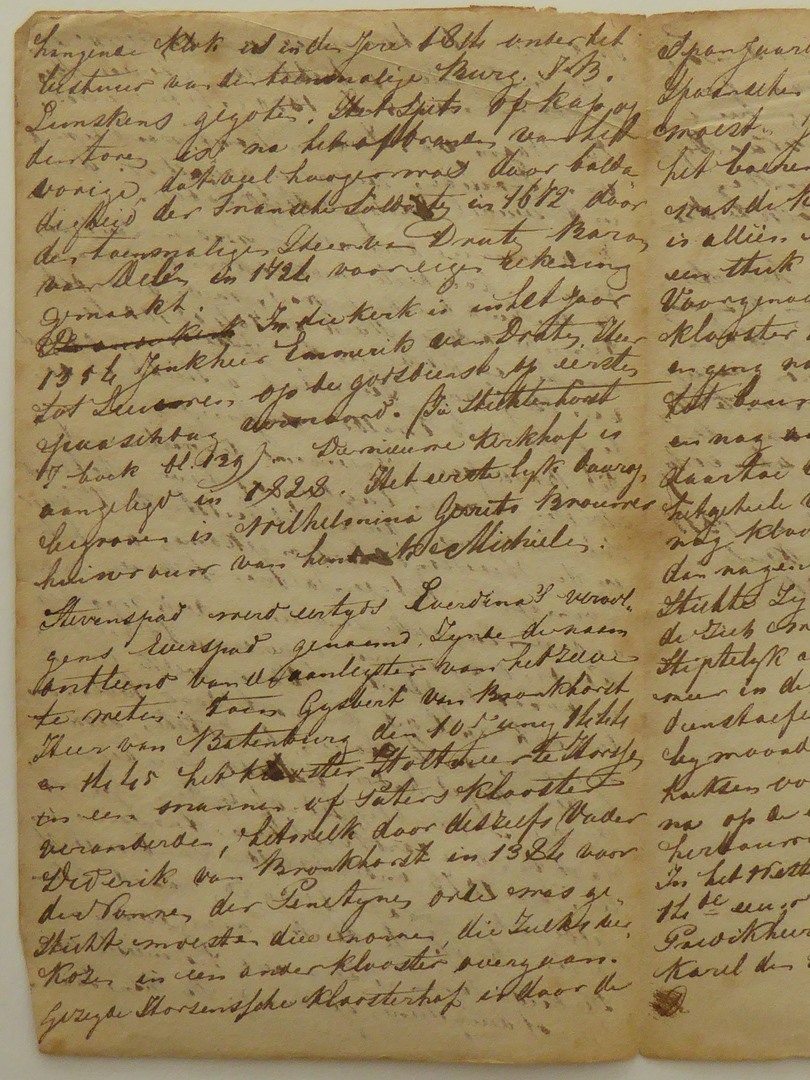 hangende klok is in den Jare 1814 onder het
bestuur van den toenmalige Burg. J. B.
Lunskens gegoten. Het Spits of kap op
den toren is na het afbranden van het
vorige, dat veel hooger was door balda
digheid der Fransche Soldaten in 1672 door
den toenmaligen Heer van Druten Baron
van Delen in 1724 voor eigen rekening
gemaakt.
In die kerk is in het Jaar
1354 Jonkheer Emmerik van Druten, Heer
tot Leuwen op de godsdienst op eersten
paaschdag vermoord. (zie Slichtenhorst
7 boek bl. 129). De nieuwe kerkhof is
aangelegd in 1828. Het eerste lyk daarop
begraven is Wilhelmina Gerrits Brouwer
huisvrouw van Michiels.
Stevenspad werd eertyds Everdina's vervol-
gens Everspad genaamd. Zynde de naam
ontleend van de aanlegster van het zelve
te weten: Toen Gysbert van Bronkhorst
Heer van Batenburg den 10 Juny 1444
en 1445 het klooster Holtmeer te Horssen
in een mannen of Paters klooster
veranderde, hetwelk door deszelfs Vader
Diderik van Bronkhorst in 1384 voor
de Nonnen der orde was ge-
sticht moesten die nonnen, die Zulks ver-
kozen in een ander klooster overgaan.
Gezegde Horsensche kloosterhof is door de
Spanjaard
Spaansche
moest
het
was de k
is alliën
een stuk
Voorgenoe
klooster
en ging na
tot
en nog
daartoe
het geheele
nog kloo
dan
Stichte Zy
de Zich
Stiptelyk
meer in de
dienst
by
na op de
In het
14de eeuw
Karel den